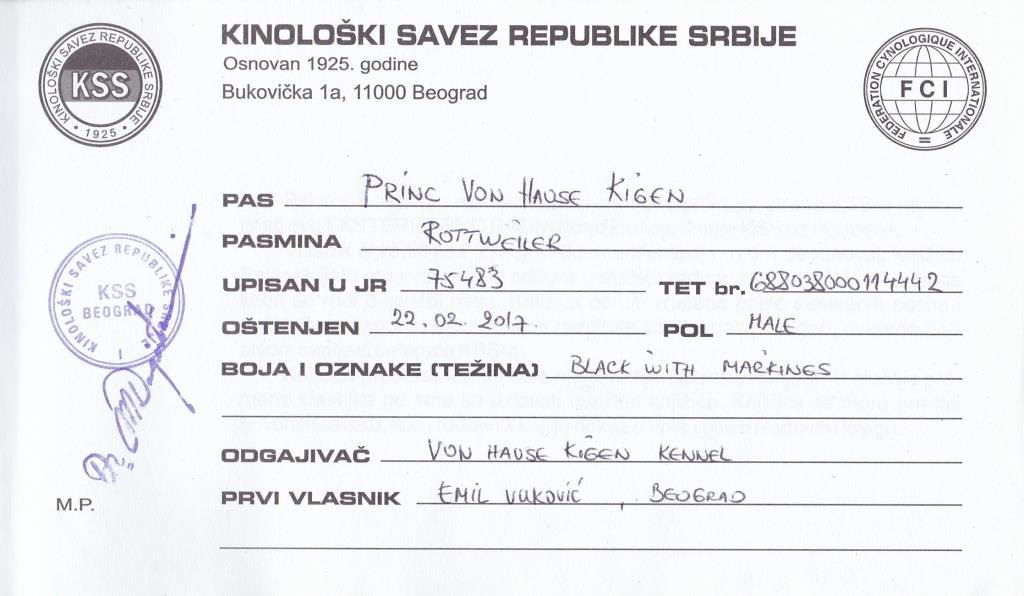 KINOLOŠKI SAVEZ REPUBLIKE SRBIJE
Osnovan 1925. godine
Bukovička 1a, 11000 Beograd
KINOLOŠKI SAVEZ REPUBLIKE SRBIJE
KSS
• 1925 •
FEDERATION CYNOLOGIQUE INTERNATIONALE
FCI
PAS PRINC VON HAUSE KIGEN
PASMINA ROTTWEILER
UPISAN U JR 75483 TET br. 688038000114442
OŠTENJEN 22.02.2017. POL MALE
BOJA I OZNAKE (TEŽINA) BLACK WITH MARKINGS
ODGAJIVAČ VON HAUSE KIGEN KENNEL
PRVI VLASNIK EMIL VUKOVIĆ, BEOGRAD
KINOLOŠKI SAVEZ REPUBLIKE SRBIJE
KSS
BEOGRAD
I
M.P.